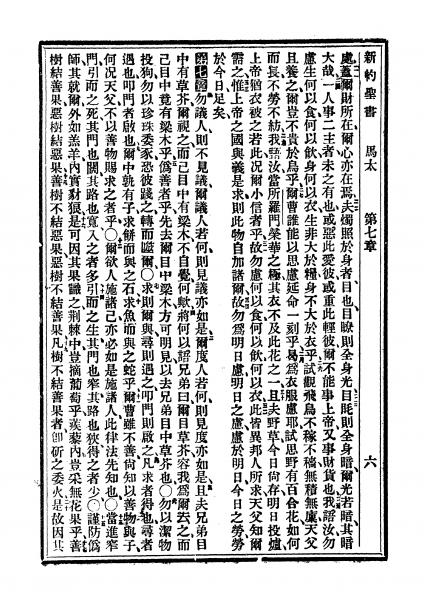 新約聖書　馬太　第七章　六
處蓋爾財所在爾心亦在焉夫燭照於身者目也目瞭則全身光目眊則全身暗爾光若暗其暗
大哉一人事二主者未之有也或惡此愛彼或重此輕彼爾不能事上帝又事財貨也我語汝勿
慮生何以食何以飲身何以衣生非大於糧身不大於衣乎試觀飛鳥不稼不穡無積無廩天父
且養之爾豈不貴於鳥乎爾曹誰能以思慮延命一刻乎曷爲衣服慮耶試思野有百合花如何
而長不勞不紡我語汝當所羅門榮華之極其衣不及此花之一且夫野草今日尚存明日投爐
上帝猶衣被之若此況爾小信者乎故勿慮何以食何以飲何以衣此皆異邦人所求天父知爾
需之惟上帝之國與義是求則此物自加諸爾故勿爲明日慮明日之慮慮於明日今日之勞勞
於今日足矣
第七章勿議人則不見議爾議人若何則見議亦如是爾度人若何則見度亦如是且夫兄弟目
中有草芥爾視之而己目中有梁木不自覺何歟將何以語兄弟曰爾目草芥容我爲爾去之而
己目中竟有梁木乎僞善者乎先去爾目中梁木方可明見以去兄弟目中草芥也○勿以潔物
投狗勿以珍珠委豕恐彼踐之轉而噬爾○求則爾與尋則遇之叩門則啟之凡求者得也尋者
遇也叩門者啟也爾中孰有子求餅而與之石求魚而與之蛇乎爾曹雖不善尚知以善物與子
何況天父不以善物賜求之者乎○爾欲人施諸己亦必如是施諸人此律法先知也○當進窄
門引而之死其門也闊其路也寬入之者多引而之生其門也窄其路也狹得之者少○謹防僞
師其就爾外如羔羊內實豺狼是可因其果識之荊棘中豈摘葡萄乎蒺藜內豈采無花果乎善
樹結善果惡樹結惡果善樹不結惡果惡樹不結善果凡樹不結善果者卽斫之委火是故因其